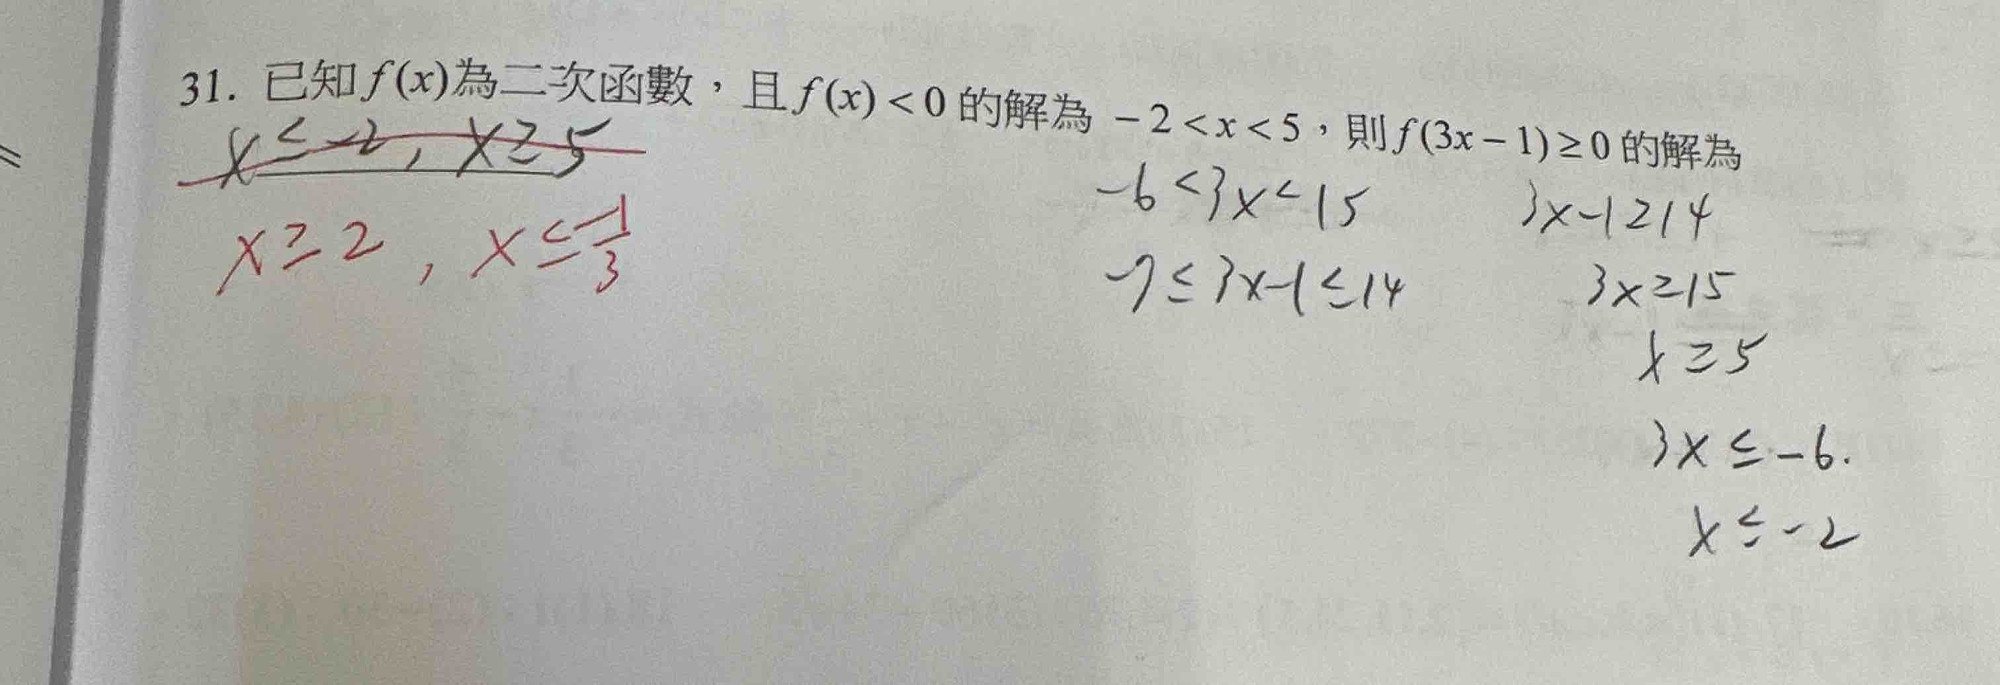 31. 已知f(x)為二次函數，且f(x)<0的解為 -2<x<5，則f(3x-1)≥0的解為
x≤-2, x≥5
x≥2, x≤-1/3
-6<3x<15
-7≤3x-1≤14
3x-1≥14
3x≥15
x≥5
3x≤-6.
x≤-2